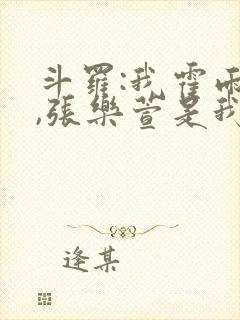 斗羅:我霍雨
,張樂萱是我
逢某